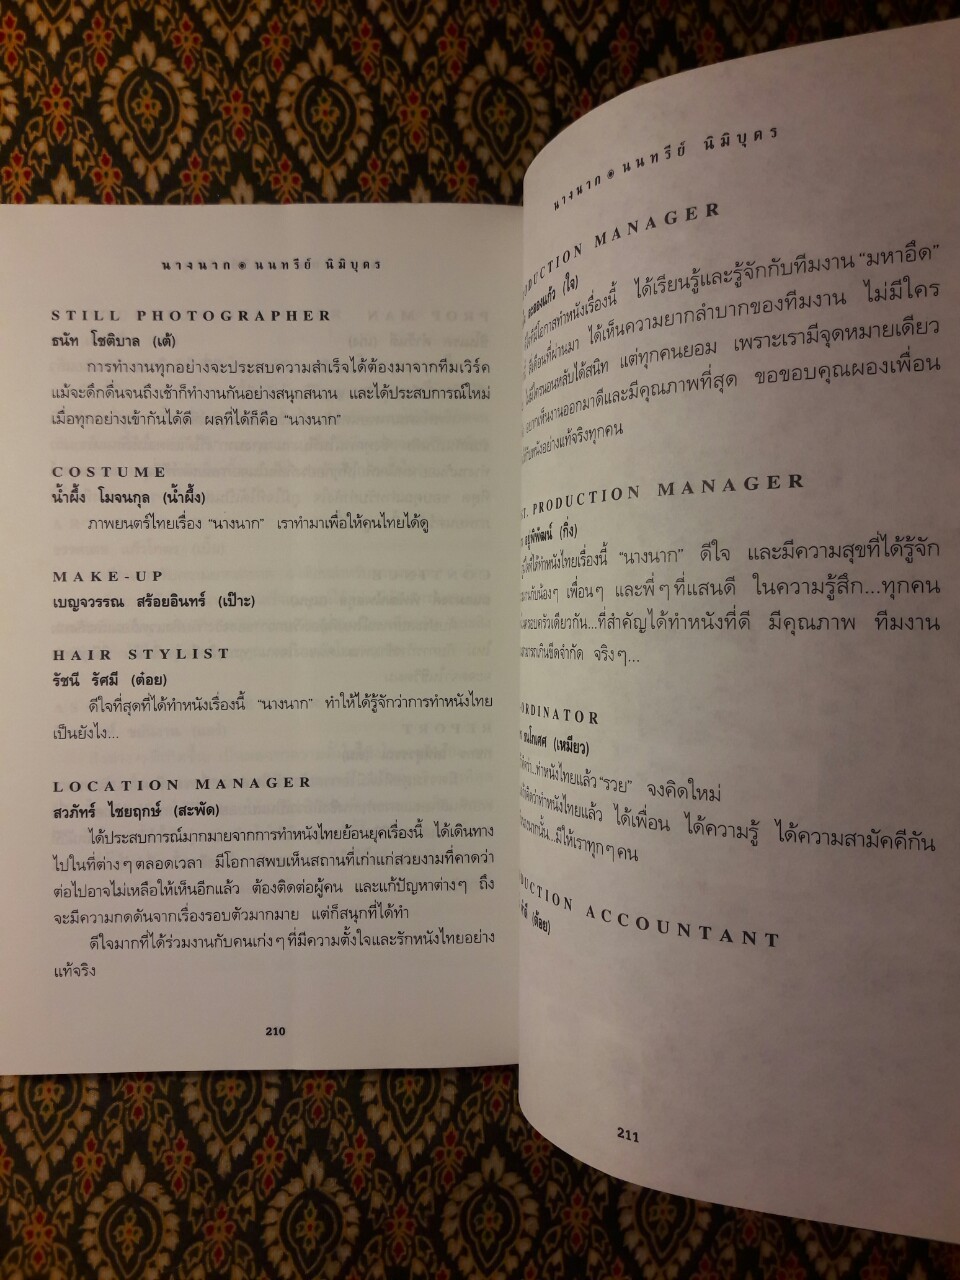 นางนาก ๏ นนทรีย์ นิมิบุตร
STILL PHOTOGRAPHER
ธนัท โชติบาล (เต้)
การทำงานทุกอย่างจะประสบความสำเร็จได้ต้องมาจากทีมเวิร์ค
แม้จะดึกดื่นจนถึงเช้าก็ทำงานกันอย่างสนุกสนาน และได้ประสบการณ์ใหม่
เมื่อทุกอย่างเข้ากันได้ดี ผลที่ได้ก็คือ “นางนาก”
COSTUME
น้ำผึ้ง โมจนกุล (น้ำผึ้ง)
ภาพยนตร์ไทยเรื่อง “นางนาก” เราทำมาเพื่อให้คนไทยได้ดู
MAKE-UP
เบญจวรรณ สร้อยอินทร์ (เป๊าะ)
HAIR STYLIST
รัชนี รัศมี (ต๋อย)
ดีใจที่สุดที่ได้ทำหนังเรื่องนี้ “นางนาก” ทำให้ได้รู้จักว่าการทำหนังไทย
เป็นยังไง...
LOCATION MANAGER
สวภัทร์ ไชยฤกษ์ (สะพัด)
ได้ประสบการณ์มากมายจากการทำหนังไทยย้อนยุคเรื่องนี้ ได้เดินทาง
ไปในที่ต่างๆ ตลอดเวลา มีโอกาสพบเห็นสถานที่เก่าแก่สวยงามที่คาดว่า
ต่อไปอาจไม่เหลือให้เห็นอีกแล้ว ต้องติดต่อผู้คน และแก้ปัญหาต่างๆ ถึง
จะมีความกดดันจากเรื่องรอบตัวมากมาย แต่ก็สนุกที่ได้ทำ
ดีใจมากที่ได้ร่วมงานกับคนเก่งๆ ที่มีความตั้งใจและรักหนังไทยอย่าง
แท้จริง
210
นางนาก ๏ นนทรีย์ นิมิบุตร
MANAGER
(ใจ)
มีโอกาสทำหนังเรื่องนี้ ได้เรียนรู้และรู้จักกับทีมงาน “มหาอึด”
สี่เดือนที่ผ่านมา ได้เห็นความยากลำบากของทีมงาน ไม่มีใคร
หลับได้สนิท แต่ทุกคนยอม เพราะเรามีจุดหมายเดียว
งานออกมาดีและมีคุณภาพที่สุด ขอขอบคุณผองเพื่อน
อย่างแท้จริงทุกคน
PRODUCTION MANAGER
อยู่พิพัฒน์ (กิ่ง)
ได้ทำหนังไทยเรื่องนี้ “นางนาก” ดีใจ และมีความสุขที่ได้รู้จัก
น้องๆ เพื่อนๆ และพี่ๆ ที่แสนดี ในความรู้สึก...ทุกคน
ครอบครัวเดียวกัน...ที่สำคัญได้ทำหนังที่ดี มีคุณภาพ ทีมงาน
เกินขีดจำกัด จริงๆ...
(เหมียว)
ทำหนังไทยแล้ว “รวย” จงคิดใหม่
ทำหนังไทยแล้ว ได้เพื่อน ได้ความรู้ ได้ความสามัคคีกัน
มีให้เราทุกๆ คน
ACCOUNTANT
(ต้อย)
211